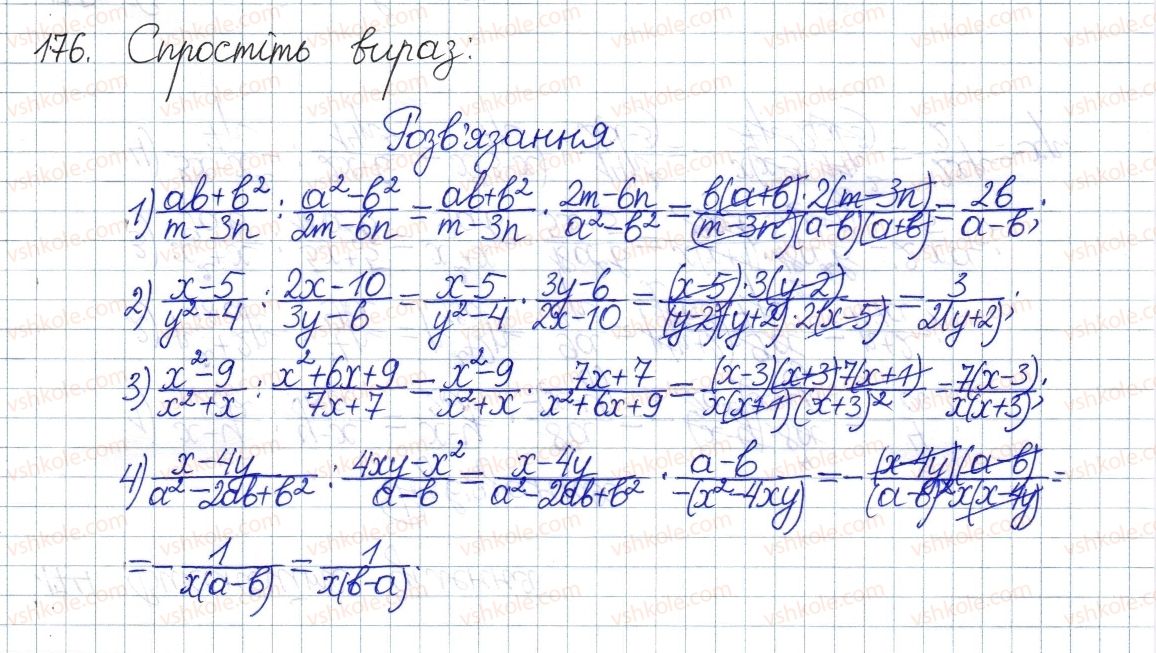 176. Спростіть вираз:
Розв'язання
1) (ab+b²)/(m-3n) : (a²-b²)/(2m-6n) = (ab+b²)/(m-3n) · (2m-6n)/(a²-b²) = (b(a+b)·2(m-3n))/((m-3n)(a-b)(a+b)) = 2b/(a-b);
2) (x-5)/(y²-4) : (2x-10)/(3y-6) = (x-5)/(y²-4) · (3y-6)/(2x-10) = ((x-5)·3(y-2))/((y-2)(y+2)·2(x-5)) = 3/(2(y+2));
3) (x²-9)/(x²+x) : (x²+6x+9)/(7x+7) = (x²-9)/(x²+x) · (7x+7)/(x²+6x+9) = ((x-3)(x+3)·7(x+1))/(x(x+1)(x+3)²) = 7(x-3)/(x(x+3));
4) (x-4y)/(a²-2ab+b²) : (4xy-x²)/(a-b) = (x-4y)/(a²-2ab+b²) · (a-b)/(-(x²-4xy)) = -((x-4y)(a-b))/((a-b)²x(x-4y)) =
= -1/(x(a-b)) = 1/(x(b-a)).